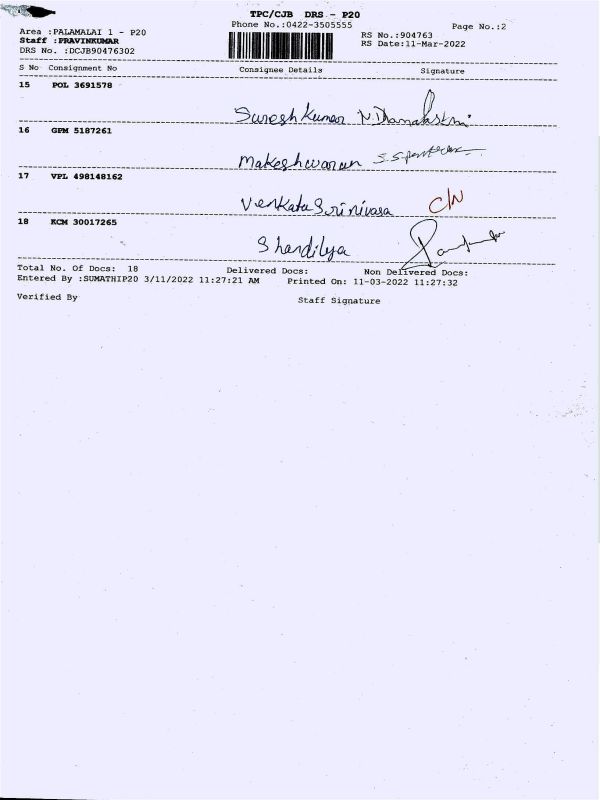 TPC/CJB DRS - P20
Phone No.:0422-3505555
Page No.:2
Area :PALAMALAI 1 - P20
Staff :PRAVINKUMAR
DRS No. :DCJB90476302
RS No.:904763
RS Date:11-Mar-2022
S No Consignment No Consignee Details Signature
15 POL 3691578
Suresh Kumar
16 GPM 5187261
Makeshwaran
17 VPL 498148162
Venkata Srinivasa C/N
18 KCM 30017265
Shandilya
Total No. Of Docs: 18 Delivered Docs: Non Delivered Docs:
Entered By :SUMATHIP20 3/11/2022 11:27:21 AM Printed On: 11-03-2022 11:27:32
Verified By Staff Signature